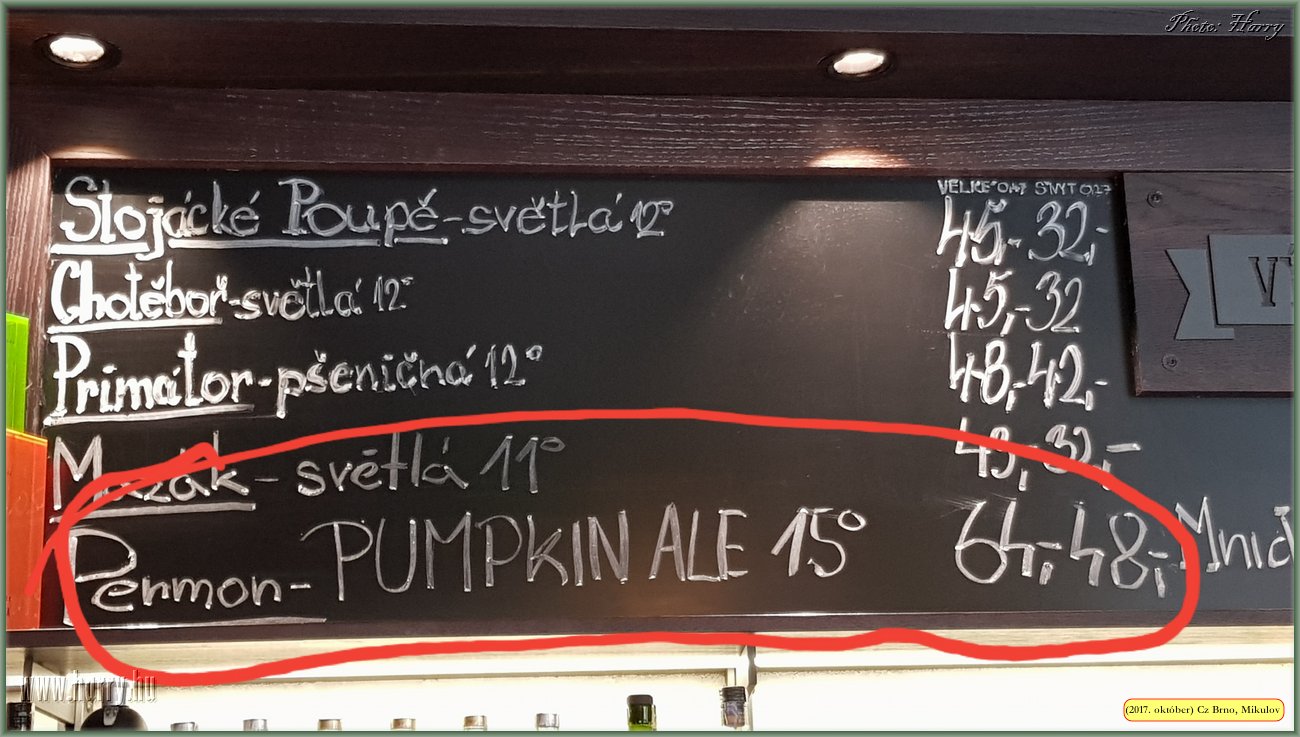 Photo: Harry
VELKÉ 0,4 SNÝT 0,27
Stojácké Poupě - světlá 12° 45,- 32,-
Chotěboř - světlá 12° 45,- 32
Primátor - pšeničná 12° 48,- 42,-
Mazák - světlá 11° 43,- 32,-
Permon - PUMPKIN ALE 15° 64,- 48,-
www.harry.hu
(2017. október) Cz Brno, Mikulov